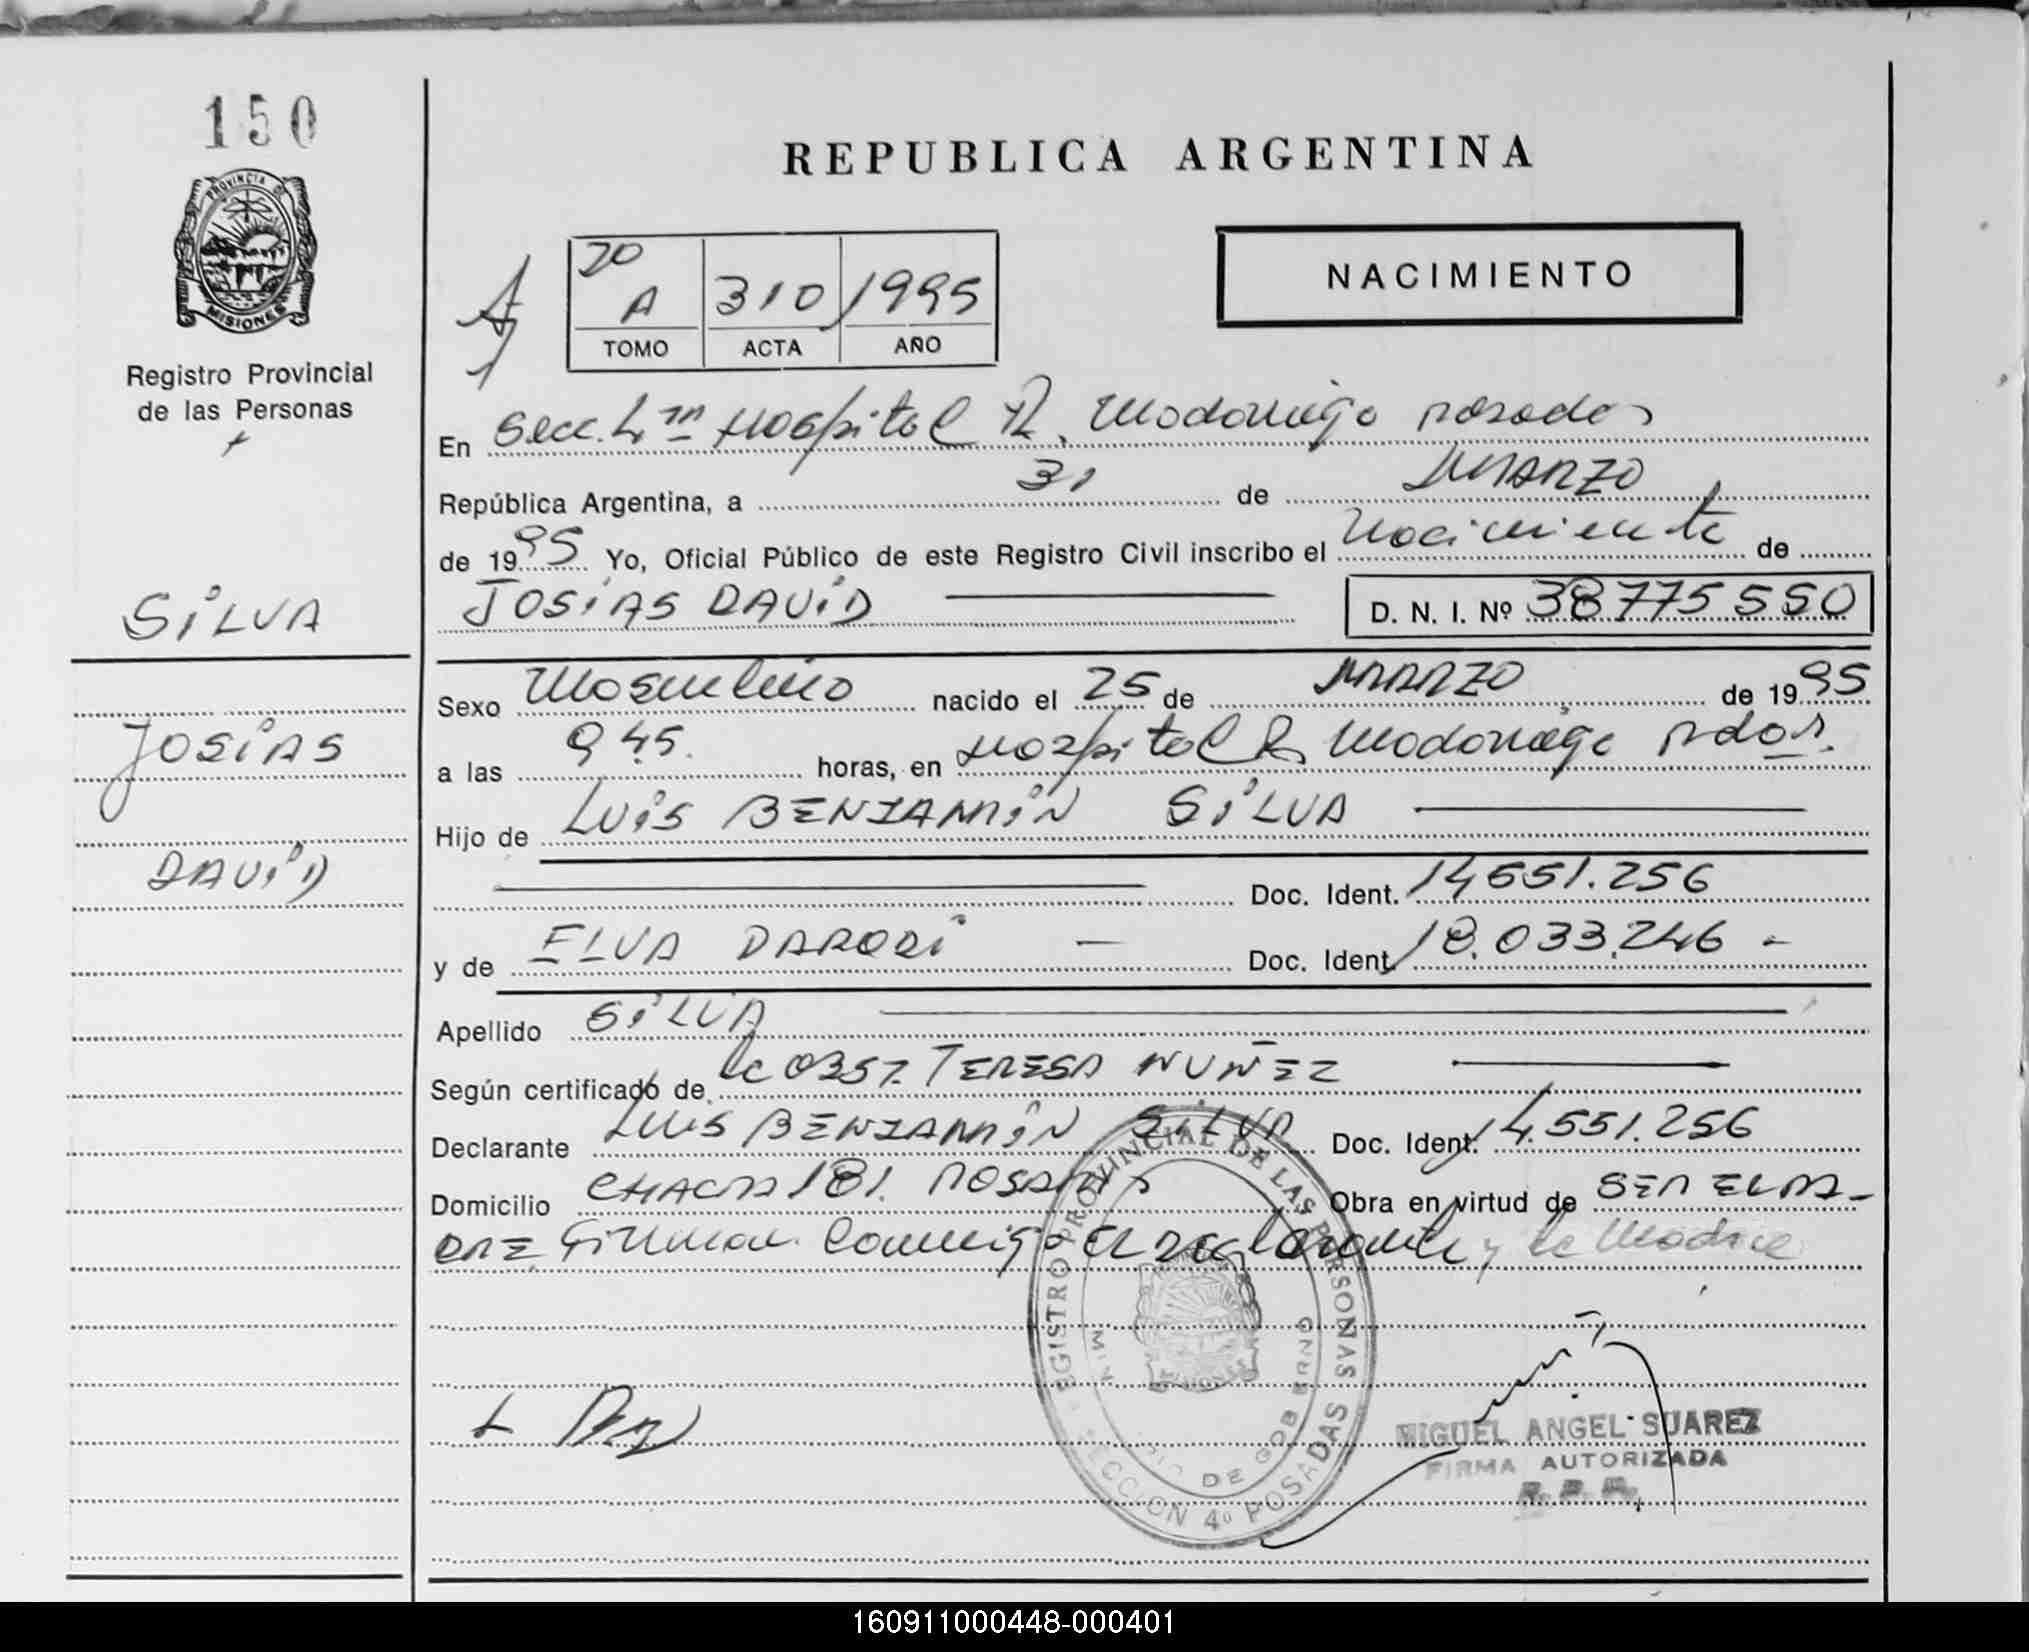 150
REPUBLICA ARGENTINA
PROVINCIA DE
MISIONES
Registro Provincial
de las Personas
NACIMIENTO
20
A 310 1995
TOMO ACTA AÑO
En Secc. 4ta Hospital R. Madariaga Posadas
República Argentina, a 31 de MARZO
de 1995 Yo, Oficial Público de este Registro Civil inscribo el Nacimiento de
JOSÍAS DAVID D. N. I. Nº 38.775.550
SILVA
JOSÍAS
DAVID
Sexo Masculino nacido el 25 de MARZO de 1995
a las 9 45. horas, en Hospital R. Madariaga Pdas.
Hijo de LUIS BENJAMÍN SILVA
Doc. Ident. 14551.256
y de ELVA DARORI — Doc. Ident. 18.033.246 -
Apellido SILVA
Según certificado de la OBST. TERESA NUÑEZ
Declarante LUIS BENJAMÍN SILVA Doc. Ident. 14.551.256
Domicilio CHACRA 181. POSADAS Obra en virtud de SER EL PA-
DRE. Firman Conmigo el declarante y la Madre
REGISTRO PROVINCIAL DE LAS PERSONAS
MIN DE GOBIERNO
MISIONES
SECCION 4º POSADAS
MIGUEL ANGEL SUAREZ
FIRMA AUTORIZADA
R. P. P.
160911000448-000401